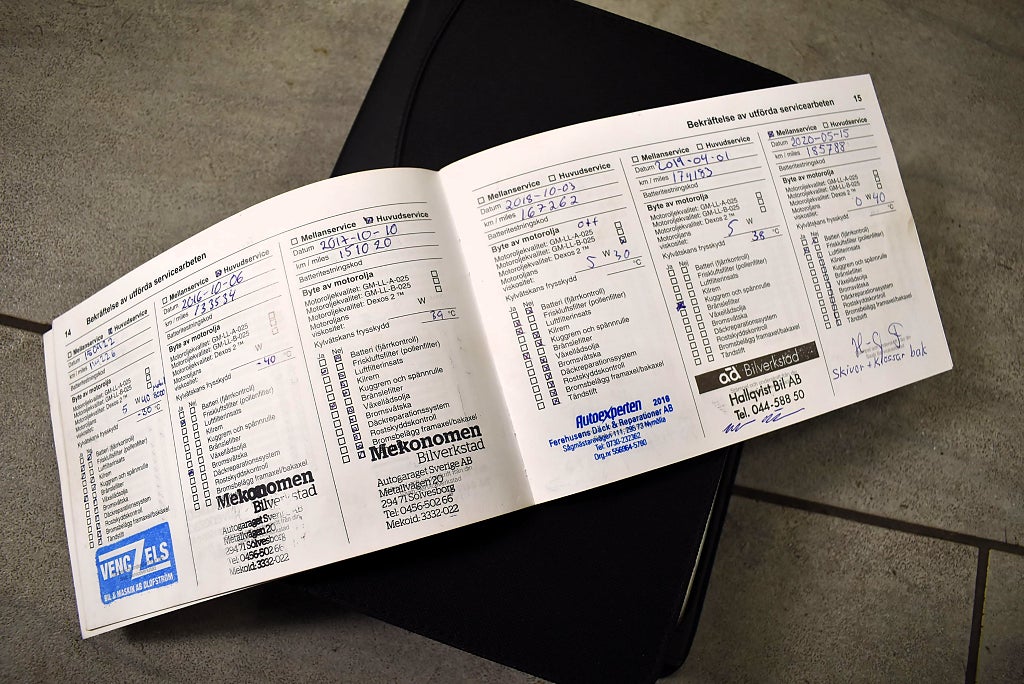 14 Bekräftelse av utförda servicearbeten
Mellanservice Huvudservice
Datum
km / miles
Batteritestningskod
Byte av motorolja
Motoroljekvalitet: GM-LL-A-025
Motoroljekvalitet: GM-LL-B-025
Motoroljekvalitet: Dexos 2 ™
Motoroljans
viskositet: 5 W 40
Kylvätskans frysskydd -30 °C
Ja Nej
Batteri (fjärrkontroll)
Friskluftsfilter (pollenfilter)
Luftfilterinsats
Kilrem
Kuggrem och spännrulle
Bränslefilter
Växellådsolja
Bromsvätska
Däckreparationssystem
Rostskyddskontroll
Bromsbelägg framaxel/bakaxel
Tändstift
VENCZELS
BIL & MASKIN AB OLOFSTRÖM
Mellanservice Huvudservice
Datum 2016-10-06
km / miles 133534
Batteritestningskod
Byte av motorolja
Motoroljekvalitet: GM-LL-A-025
Motoroljekvalitet: GM-LL-B-025
Motoroljekvalitet: Dexos 2 ™
Motoroljans W
viskositet:
Kylvätskans frysskydd -40 °C
Ja Nej
Batteri (fjärrkontroll)
Friskluftsfilter (pollenfilter)
Luftfilterinsats
Kilrem
Kuggrem och spännrulle
Bränslefilter
Växellådsolja
Bromsvätska
Däckreparationssystem
Rostskyddskontroll
Bromsbelägg framaxel/bakaxel
Mekonomen
Bilverkstad
Autogaraget Sverige AB
Metallvägen 20
294 71 Sölvesborg
Tel: 0456-502 66
Mekoid: 3332-022
Mellanservice Huvudservice
Datum 2017-10-10
km / miles 151020
Batteritestningskod
Byte av motorolja
Motoroljekvalitet: GM-LL-A-025
Motoroljekvalitet: GM-LL-B-025
Motoroljekvalitet: Dexos 2 ™
Motoroljans W
viskositet:
Kylvätskans frysskydd 39 °C
Ja Nej
Batteri (fjärrkontroll)
Friskluftsfilter (pollenfilter)
Luftfilterinsats
Kilrem
Kuggrem och spännrulle
Bränslefilter
Växellådsolja
Bromsvätska
Däckreparationssystem
Rostskyddskontroll
Bromsbelägg framaxel/bakaxel
Mekonomen
Bilverkstad
Autogaraget Sverige AB
Metallvägen 20
294 71 Sölvesborg
Tel: 0456-502 66
Mekoid: 3332-022
Bekräftelse av utförda servicearbeten 15
Mellanservice Huvudservice
Datum 2018-10-03
km / miles 167262
Batteritestningskod
Byte av motorolja
Motoroljekvalitet: GM-LL-A-025
Motoroljekvalitet: GM-LL-B-025
Motoroljekvalitet: Dexos 2 ™
Motoroljans
viskositet: 5 W 30
Kylvätskans frysskydd °C
Ja Nej
Batteri (fjärrkontroll)
Friskluftsfilter (pollenfilter)
Luftfilterinsats
Kilrem
Kuggrem och spännrulle
Bränslefilter
Växellådsolja
Bromsvätska
Däckreparationssystem
Rostskyddskontroll
Bromsbelägg framaxel/bakaxel
Tändstift
Autoexperten 2018
Ferehusens Däck & Reparationer AB
Sågmästarevägen 111, 295 73 Nymölla
Tel: 0730-232362
Org.nr 556964-5780
Mellanservice Huvudservice
Datum 2019-04-01
km / miles 174183
Batteritestningskod
Byte av motorolja
Motoroljekvalitet: GM-LL-A-025
Motoroljekvalitet: GM-LL-B-025
Motoroljekvalitet: Dexos 2 ™
Motoroljans
viskositet: 5 W
Kylvätskans frysskydd 38 °C
Ja Nej
Batteri (fjärrkontroll)
Friskluftsfilter (pollenfilter)
Luftfilterinsats
Kilrem
Kuggrem och spännrulle
Bränslefilter
Växellådsolja
Bromsvätska
Däckreparationssystem
Rostskyddskontroll
Bromsbelägg framaxel/bakaxel
Tändstift
ad Bilverkstad
Hallqvist Bil AB
Tel. 044-588 50
Mellanservice Huvudservice
Datum 2020-05-15
km / miles 185788
Batteritestningskod
Byte av motorolja
Motoroljekvalitet: GM-LL-A-025
Motoroljekvalitet: GM-LL-B-025
Motoroljekvalitet: Dexos 2 ™
Motoroljans
viskositet: 0 W 40
Kylvätskans frysskydd °C
Ja Nej
Batteri (fjärrkontroll)
Friskluftsfilter (pollenfilter)
Luftfilterinsats
Kilrem
Kuggrem och spännrulle
Bränslefilter
Växellådsolja
Bromsvätska
Däckreparationssystem
Rostskyddskontroll
Bromsbelägg framaxel/bakaxel
Tändstift
Skivor + Klossar bak